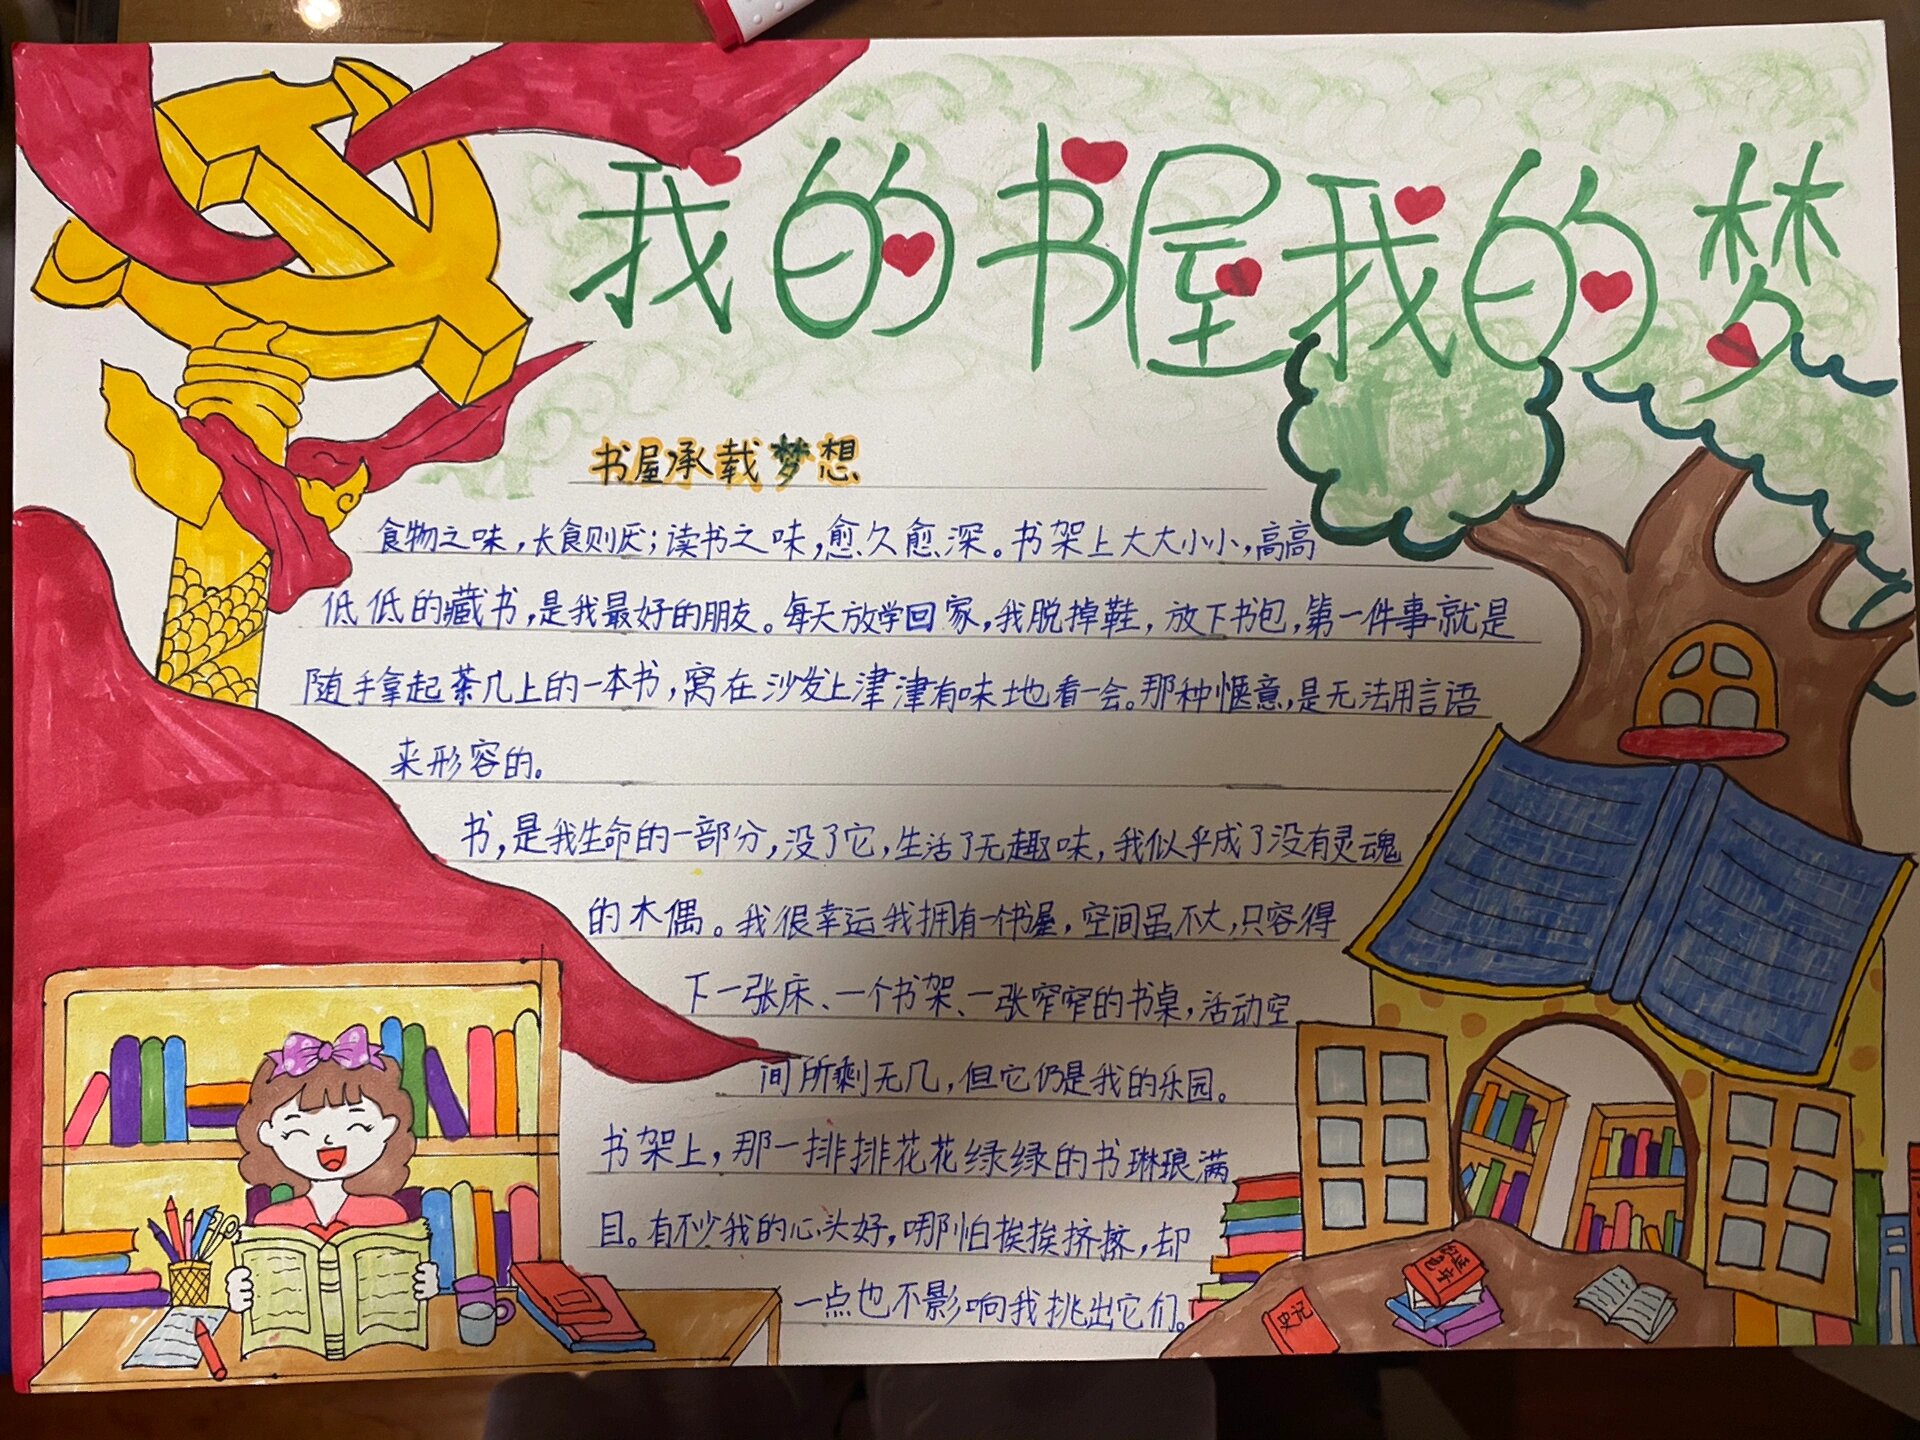 我的书屋我的梦
书屋承载梦想
食物之味，长食则厌；读书之味，愈久愈深。书架上大大小小，高高
低低的藏书，是我最好的朋友。每天放学回家，我脱掉鞋，放下书包，第一件事就是
随手拿起茶几上的一本书，窝在沙发上津津有味地看一会。那种惬意，是无法用言语
来形容的。
书，是我生命的一部分，没了它，生活了无趣味，我似乎成了没有灵魂
的木偶。我很幸运我拥有一个书屋，空间虽不大，只容得
下一张床、一个书架、一张窄窄的书桌，活动空
间所剩无几，但它仍是我的乐园。
书架上，那一排排花花绿绿的书琳琅满
目。有不少我的心头好，哪怕挨挨挤挤，却
一点也不影响我挑出它们。
史记